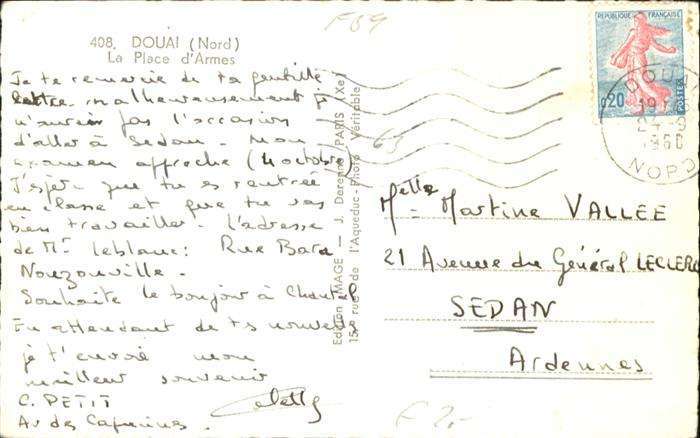 F69
408. DOUAI (Nord)
La Place d'Armes
Je te remercie de ta gentille
lettre malheureusement je
n'aurai pas l'occasion
d'aller à Sedan. Mon
examen approche (4 octobre)
J'espère que tu es rentrée
en classe et que tu vas
bien travailler. L'adresse
de Mr Leblanc: Rue Bara
Nouzonville.
Souhaite le bonjour à Chantal
En attendant de tes nouvelles
je t'envoie mon
meilleur souvenir
C. PETIT
Av des Capucines.
Edition IMAGE — J. Derenne, PARIS (Xe)
15, rue de l'Aqueduc - Photo Véritable
63
REPUBLIQUE FRANÇAISE
0,20
POSTES
DOUAI
1960
NORD
Melle Martine VALLÉE
21 Avenue du Général LECLERC
SEDAN
Ardennes
F 2,-